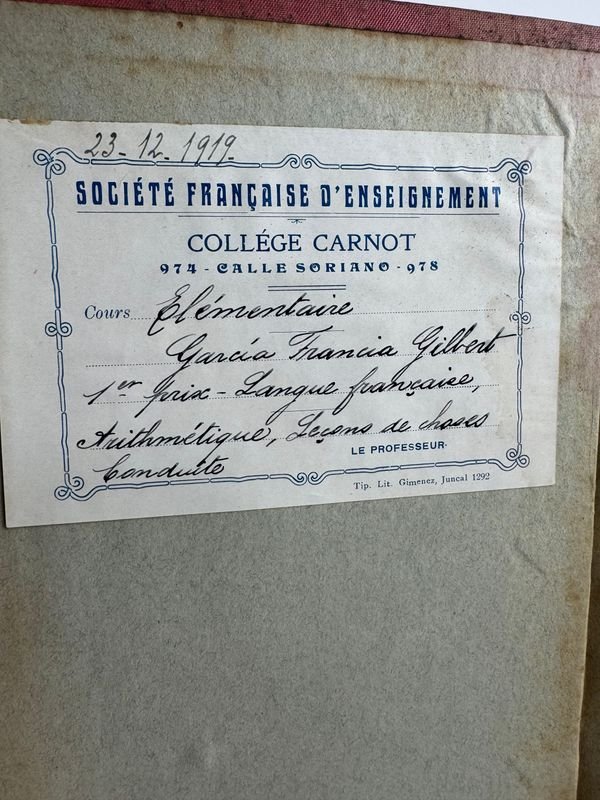 23-12-1919.
SOCIÉTÉ FRANÇAISE D'ENSEIGNEMENT
COLLÉGE CARNOT
974 - CALLE SORIANO - 978
Cours Elémentaire
García Francia Gilbert
1er prix - Langue française,
Arithmétique, Leçons de choses
LE PROFESSEUR
Conduite
Tip. Lit. Gimenez, Juncal 1292